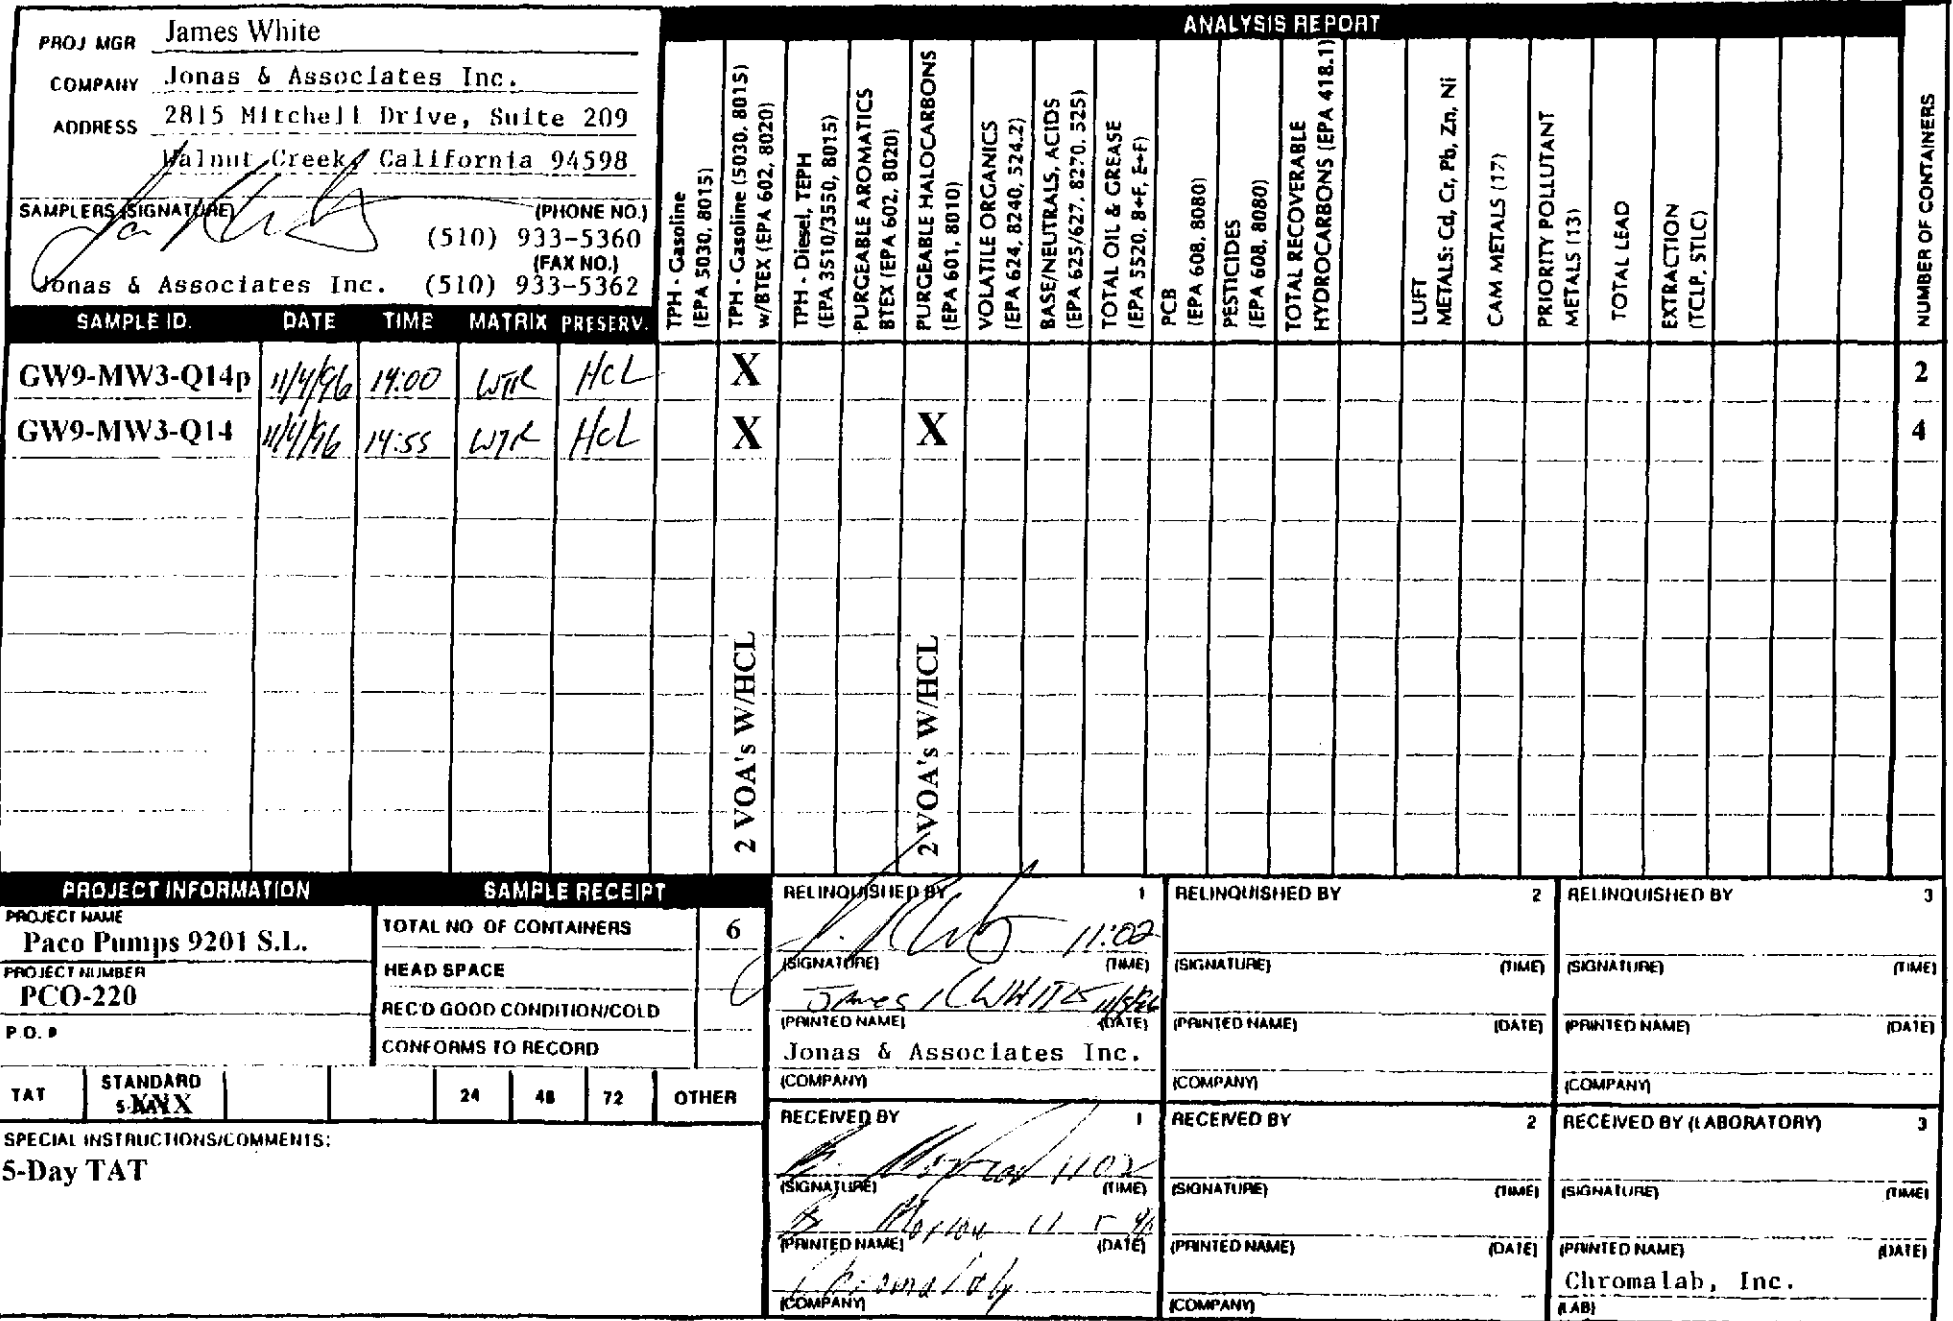 ANALYSIS REPORT
PROJ MGR James White
COMPANY Jonas & Associates Inc.
ADDRESS 2815 Mitchell Drive, Suite 209
Walnut Creek, California 94598
SAMPLERS (SIGNATURE) (PHONE NO.)
(510) 933-5360
(FAX NO.)
Jonas & Associates Inc. (510) 933-5362
SAMPLE ID. DATE TIME MATRIX PRESERV.
TPH - Gasoline
(EPA 5030, 8015)
TPH - Gasoline (5030, 8015)
w/BTEX (EPA 602, 8020)
TPH - Diesel, TEPH
(EPA 3510/3550, 8015)
PURGEABLE AROMATICS
BTEX (EPA 602, 8020)
PURGEABLE HALOCARBONS
(EPA 601, 8010)
VOLATILE ORGANICS
(EPA 624, 8240, 524.2)
BASE/NEUTRALS, ACIDS
(EPA 625/627, 8270, 525)
TOTAL OIL & GREASE
(EPA 5520, B+F, E+F)
PCB
(EPA 608, 8080)
PESTICIDES
(EPA 608, 8080)
TOTAL RECOVERABLE
HYDROCARBONS (EPA 418.1)
LUFT
METALS: Cd, Cr, Pb, Zn, Ni
CAM METALS (17)
PRIORITY POLLUTANT
METALS (13)
TOTAL LEAD
EXTRACTION
(TCLP, STLC)
NUMBER OF CONTAINERS
GW9-MW3-Q14p 11/4/96 14:00 WTR HCL X 2
GW9-MW3-Q14 11/4/96 14:55 WTR HCL X X 4
2 VOA's W/HCL
2 VOA's W/HCL
PROJECT INFORMATION
PROJECT NAME
Paco Pumps 9201 S.L.
PROJECT NUMBER
PCO-220
P.O. #
SAMPLE RECEIPT
TOTAL NO OF CONTAINERS 6
HEAD SPACE
REC'D GOOD CONDITION/COLD
CONFORMS TO RECORD
TAT STANDARD 24 48 72 OTHER
5-DAY X
SPECIAL INSTRUCTIONS/COMMENTS:
5-Day TAT
RELINQUISHED BY 1
11:02
(SIGNATURE) (TIME)
James K WHITE 11/5/96
(PRINTED NAME) (DATE)
Jonas & Associates Inc.
(COMPANY)
RELINQUISHED BY 2
(SIGNATURE) (TIME)
(PRINTED NAME) (DATE)
(COMPANY)
RELINQUISHED BY 3
(SIGNATURE) (TIME)
(PRINTED NAME) (DATE)
(COMPANY)
RECEIVED BY 1
1102
(SIGNATURE) (TIME)
B 11 5 96
(PRINTED NAME) (DATE)
Chromalab
(COMPANY)
RECEIVED BY 2
(SIGNATURE) (TIME)
(PRINTED NAME) (DATE)
(COMPANY)
RECEIVED BY (LABORATORY) 3
(SIGNATURE) (TIME)
(PRINTED NAME) (DATE)
Chromalab, Inc.
(LAB)